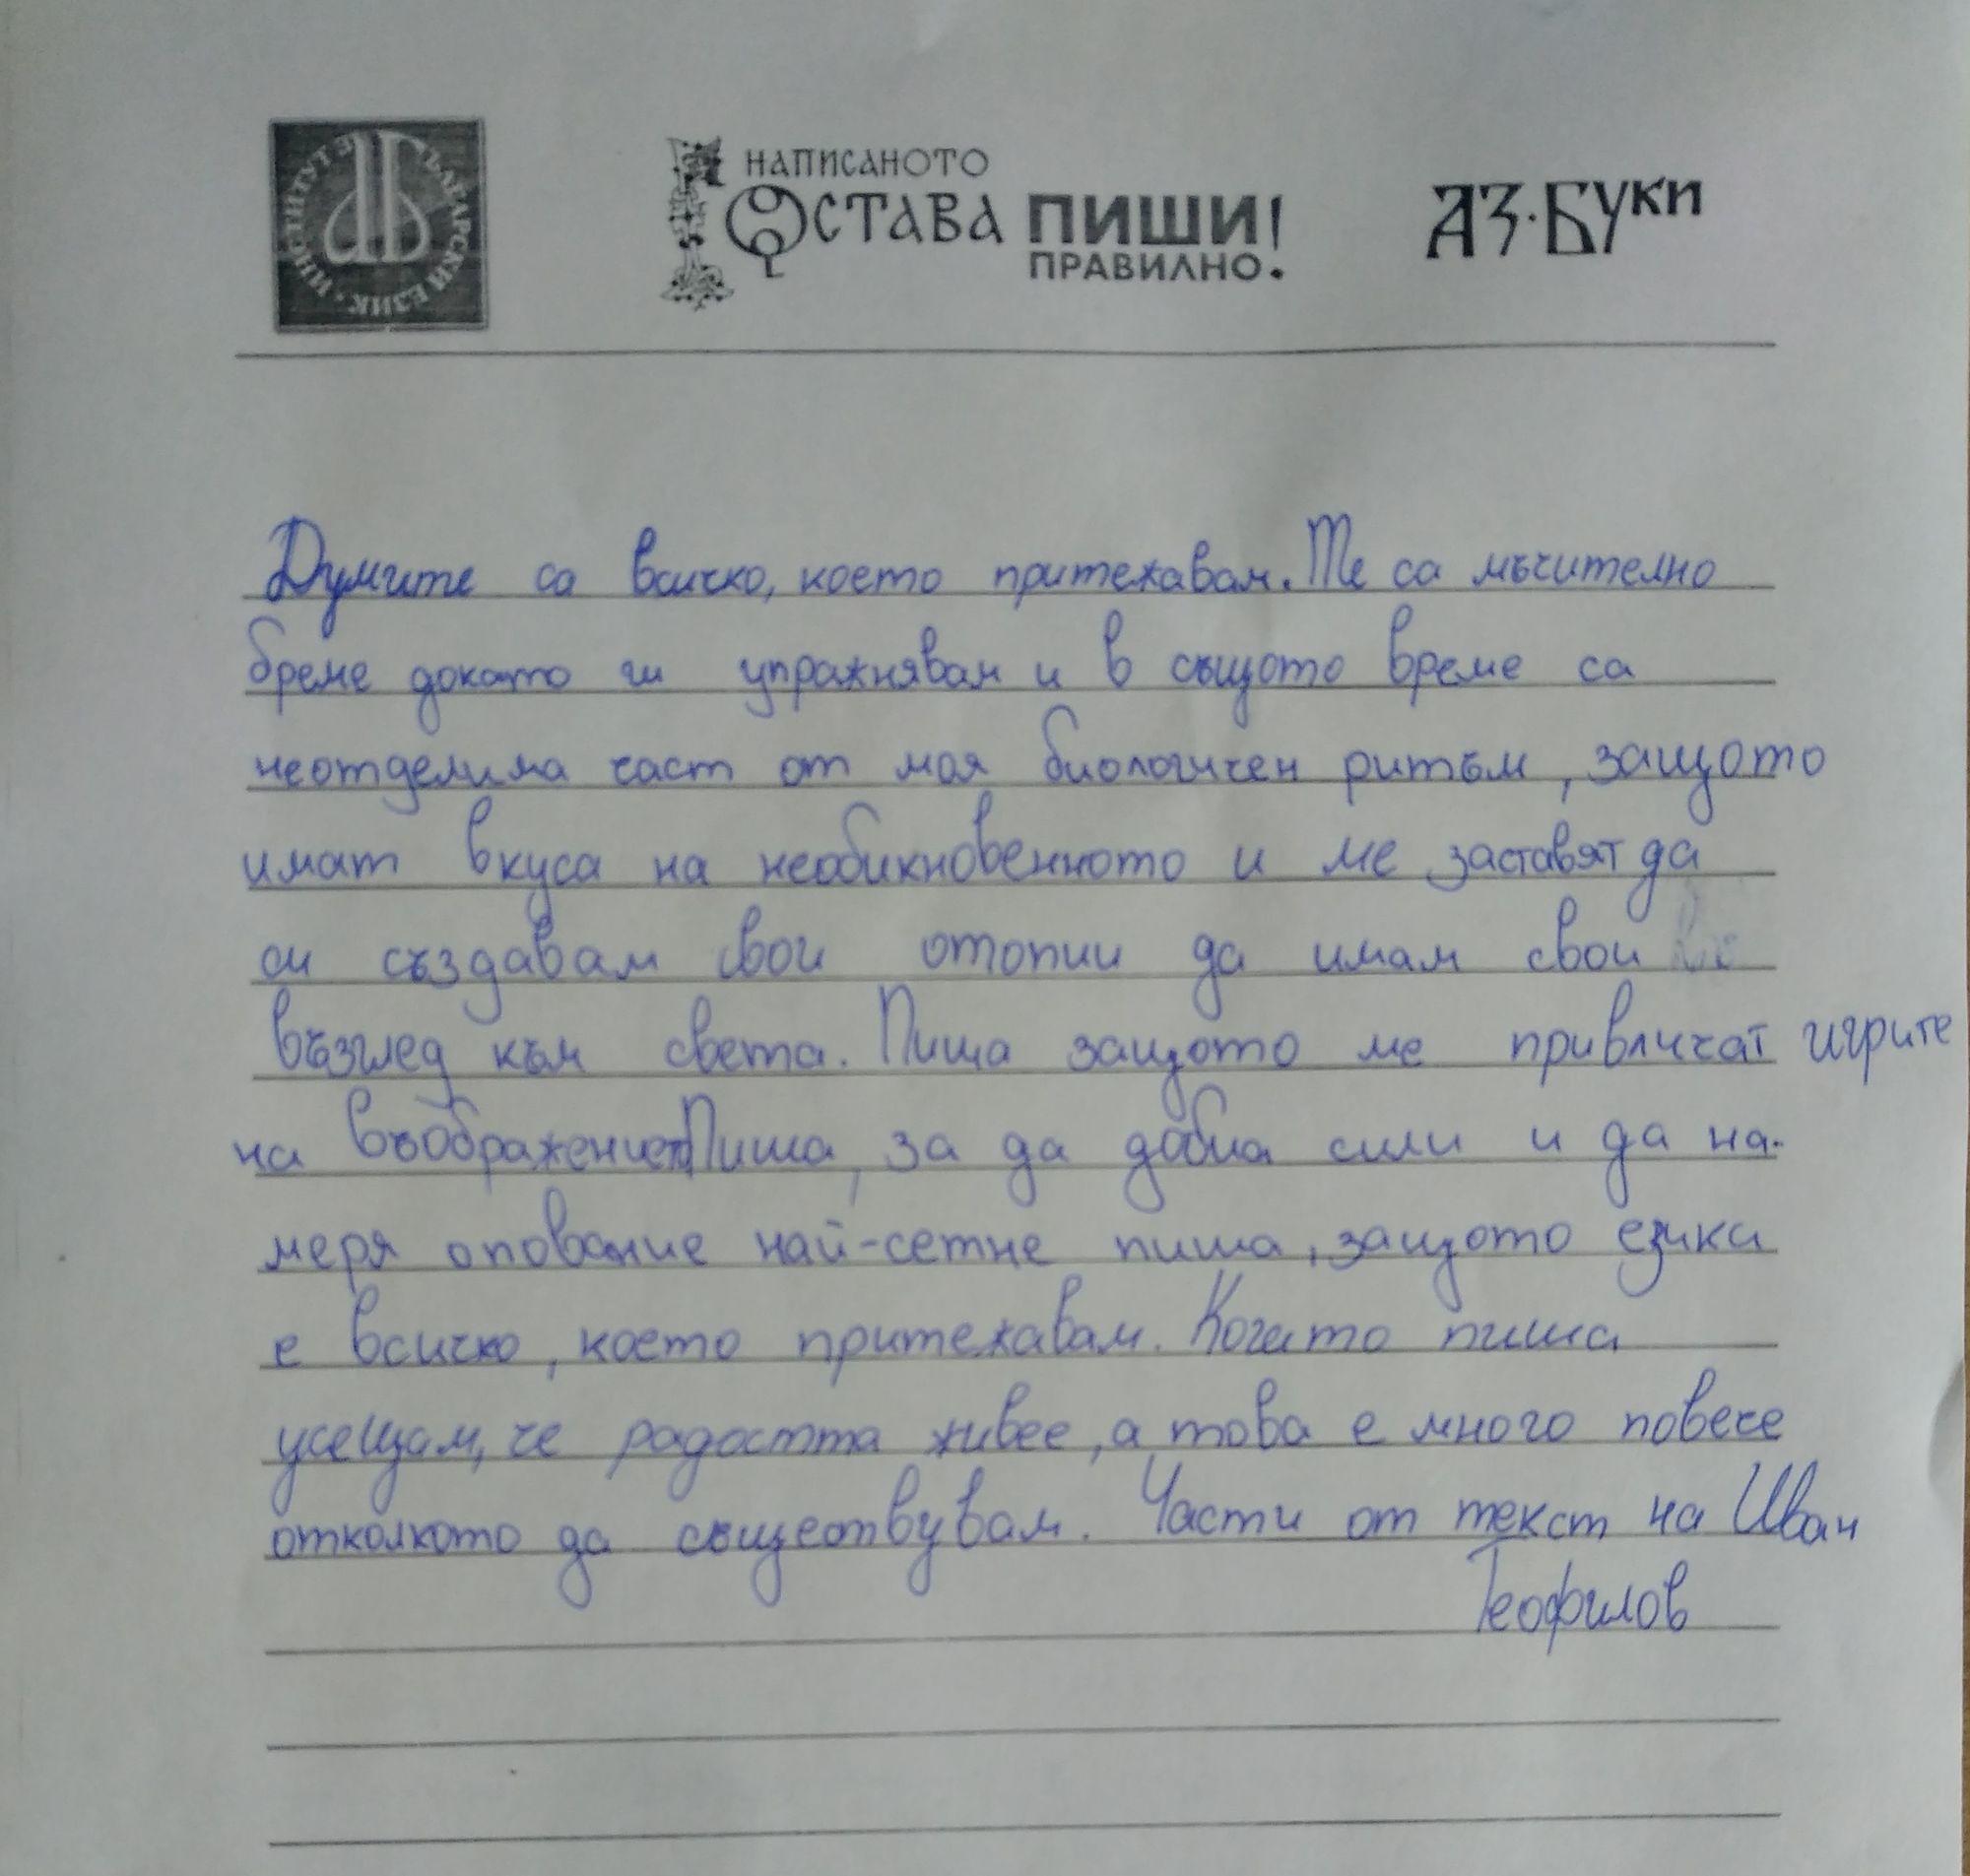 ИНСТИТУТ ЗА БЪЛГАРСКИ ЕЗИК
НАПИСАНОТО
ОСТАВА ПИШИ!
ПРАВИЛНО!
АЗ·БУКИ
Думите са всичко, което притежавам. Те са мъчително
бреме докато ги упражнявам и в същото време са
неотделима част от моя биологичен ритъм, защото
имат вкуса на необикновенното и ме заставят да
си създавам свои отопии да имам свои
възглед към света. Пиша защото ме привличат игрите
на въображението Пиша, за да добия сили и да на-
меря опование най-сетне пиша, защото езика
е всичко, което притежавам. Когато пиша
усещам, че радостта живее, а това е много повече
отколкото да съществувам. Части от текст на Иван
Теофилов